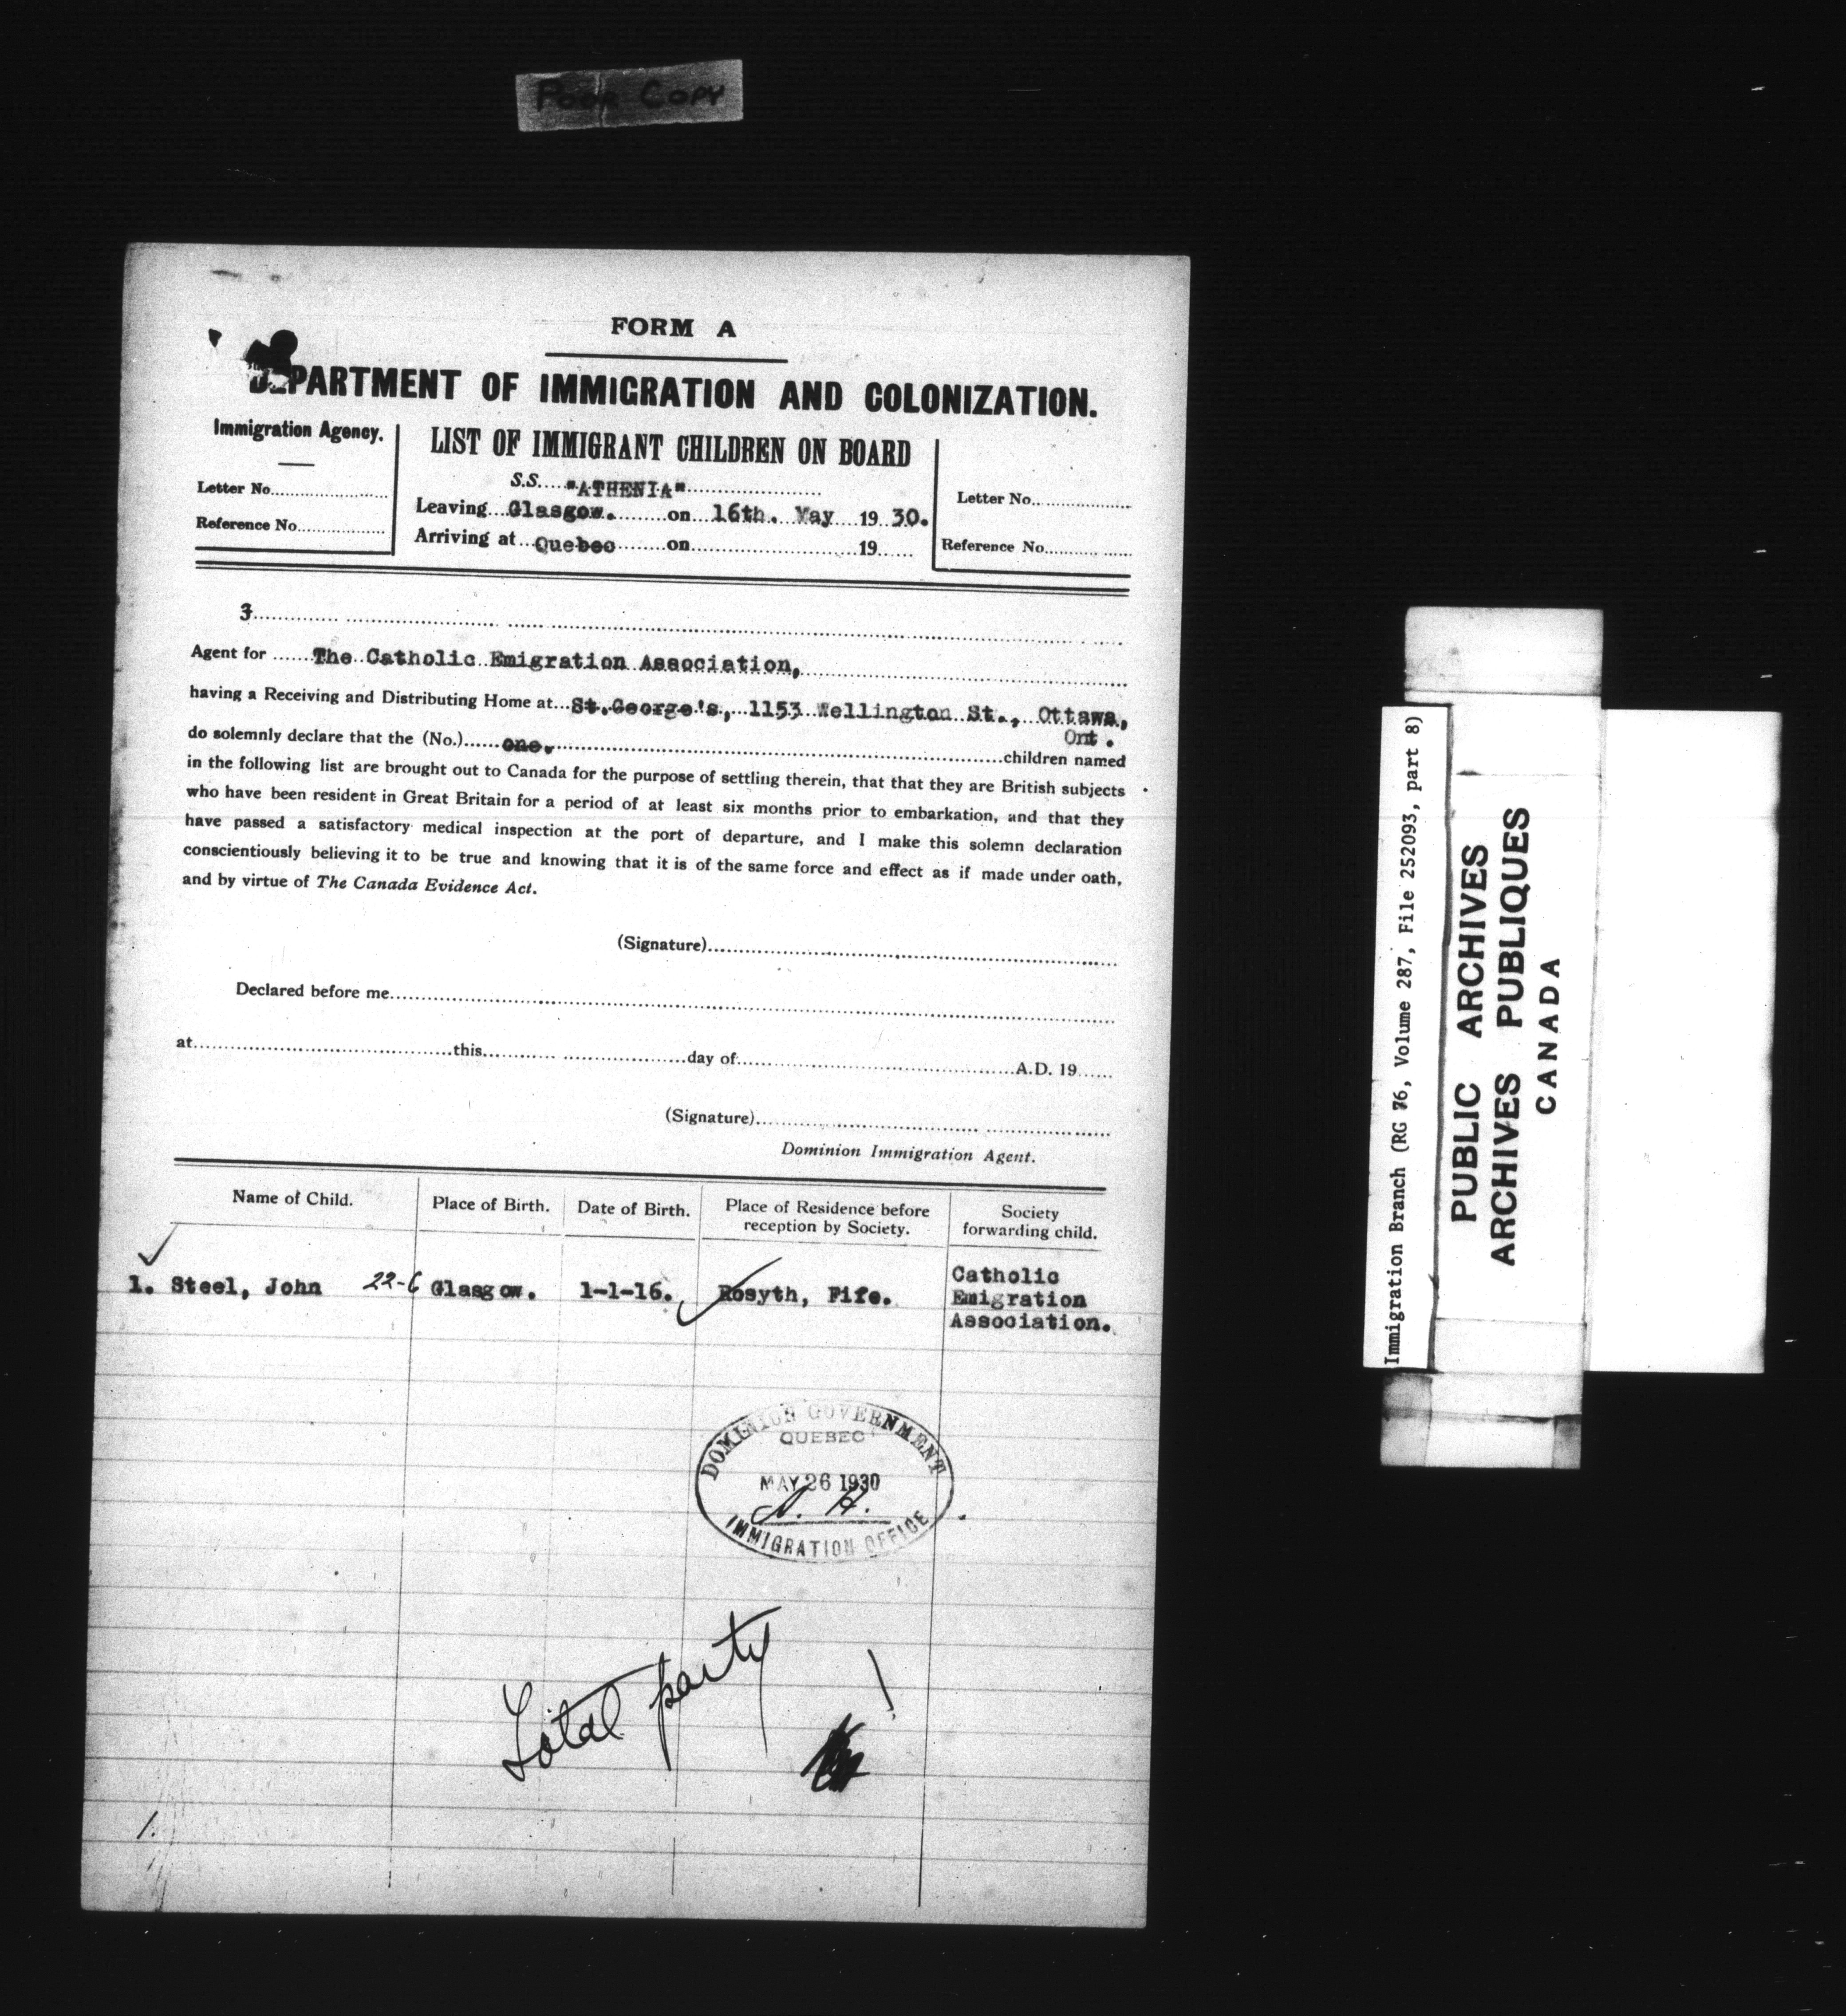 Poor Copy
FORM A
DEPARTMENT OF IMMIGRATION AND COLONIZATION.
Immigration Agency.
Letter No.
Reference No.
LIST OF IMMIGRANT CHILDREN ON BOARD
S.S. "ATHENIA"
Leaving Glasgow. on 16th. May 19 30.
Arriving at Quebec on 19
Letter No.
Reference No.
3
Agent for The Catholic Emigration Association,
having a Receiving and Distributing Home at St.George's, 1153 Wellington St., Ottawa,
Ont.
do solemnly declare that the (No.) one. children named
in the following list are brought out to Canada for the purpose of settling therein, that that they are British subjects
who have been resident in Great Britain for a period of at least six months prior to embarkation, and that they
have passed a satisfactory medical inspection at the port of departure, and I make this solemn declaration
conscientiously believing it to be true and knowing that it is of the same force and effect as if made under oath,
and by virtue of The Canada Evidence Act.
(Signature)
Declared before me
at this day of A.D. 19
(Signature)
Dominion Immigration Agent.
Name of Child. Place of Birth. Date of Birth. Place of Residence before reception by Society. Society forwarding child.
1. Steel, John 22-6 Glasgow. 1-1-16. Rosyth, Fife. Catholic
Emigration
Association.
DOMINION GOVERNMENT
QUEBEC
MAY 26 1930
IMMIGRATION OFFICE
Total party 1
1.
Immigration Branch (RG 76, Volume 287, File 252093, part 8)
PUBLIC ARCHIVES
ARCHIVES PUBLIQUES
CANADA